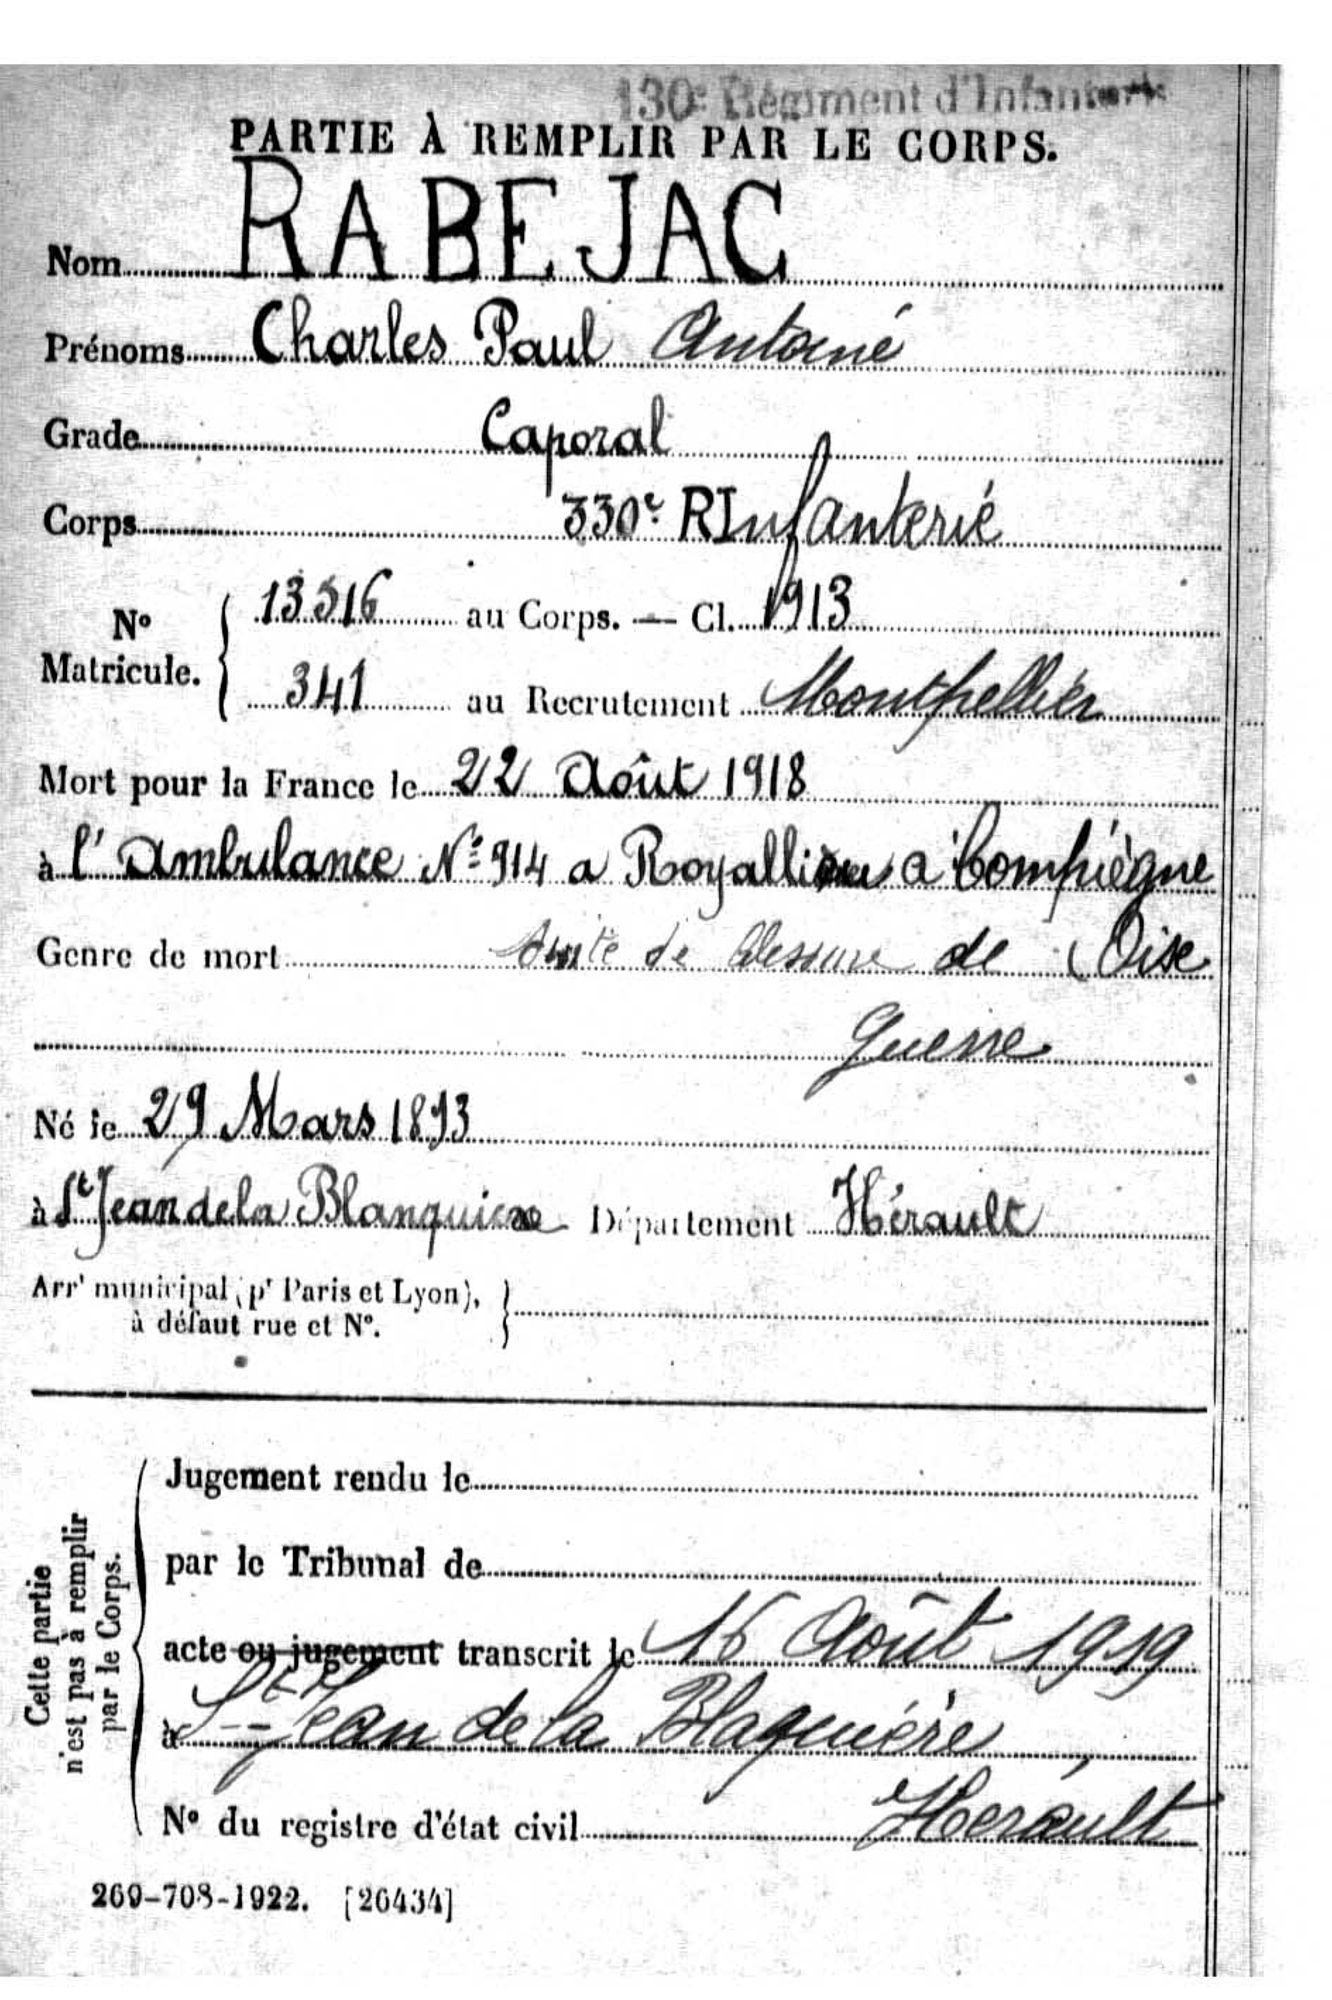 130e Régiment d'Infanterie
PARTIE À REMPLIR PAR LE CORPS.
Nom RABEJAC
Prénoms Charles Paul Antoine
Grade Caporal
Corps 330e RInfanterie
No Matricule. { 13516 au Corps. — Cl. 1913
341 au Recrutement Montpellier
Mort pour la France le 22 Août 1918
à l'Ambulance No 914 a Royallieu a Compiègne
Genre de mort suite de blessure de (Oise
Guerre
Né le 29 Mars 1893
à St Jean de la Blanquiere Département Hérault
Arrt municipal (pr Paris et Lyon),
à défaut rue et No.
Cette partie
n'est pas à remplir
par le Corps.
Jugement rendu le
par le Tribunal de
acte ou jugement transcrit le 16 Août 1919
à St Jean de la Blaquière,
No du registre d'état civil Herault
269-708-1922. [26434]